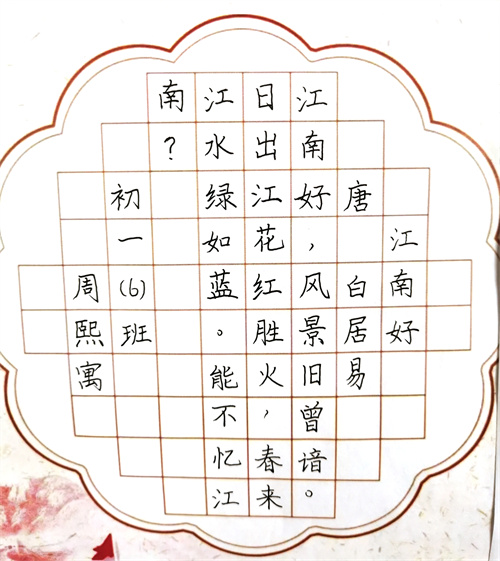 江南好
唐白居易
江南好，风景旧曾谙。
日出江花红胜火，春来
江水绿如蓝。能不忆江
南？
初一(6)班
周熙寓